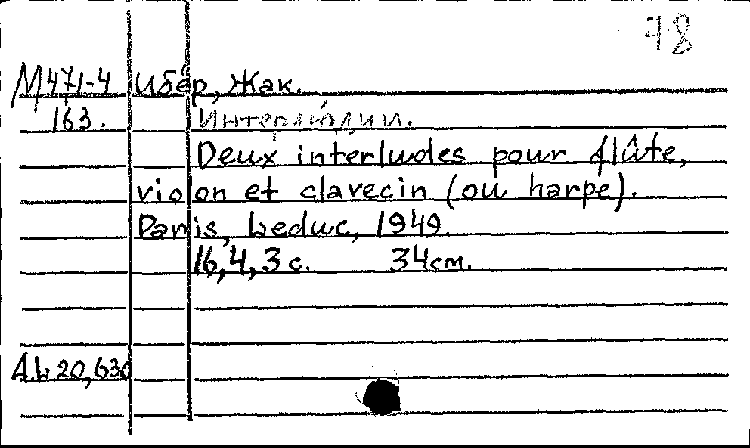 78
М471-4 Ибер, Жак.
163. Интерлюдии.
Deux interludes pour flûte,
violon et clavecin (ou harpe).
Paris, Leduc, 1949.
16, 4, 3 с. 34см.
20,630